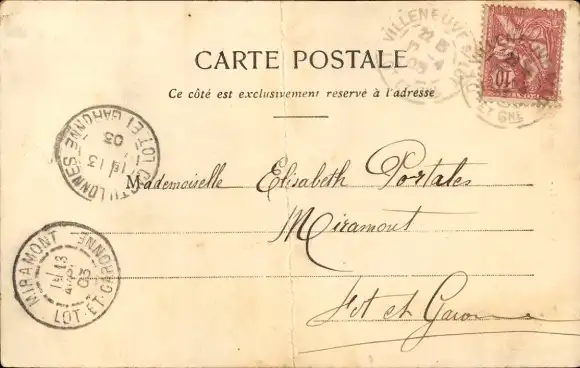 CARTE POSTALE
Ce côté est exclusivement reservé à l'adresse
VILLENEUVE
10
LOT ET GARONNE
13
03
Mademoiselle Elisabeth Portales
Miramont
Lot et Garonne
MIRAMONT
13
03
LOT-ET-GARONNE